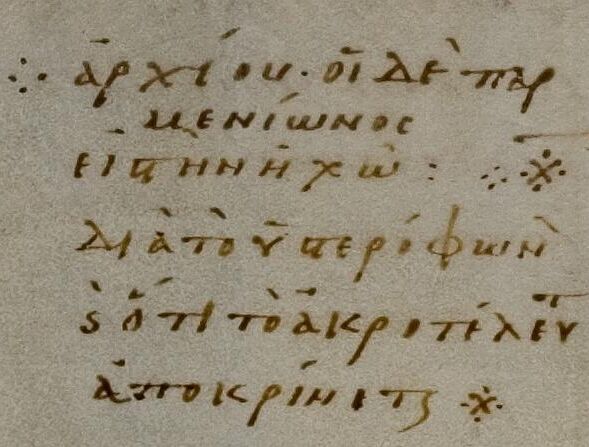 ⁘ ἀρχίου · οἱ δὲ παρ
μενίωνος
εἰς τὴν ἠχὼ : ⁘ ※
διὰ τὸ ὑστερόφων
ϗ ὅτι τὸ ἀκροτέλευτ
ἀποκρίνεται ※